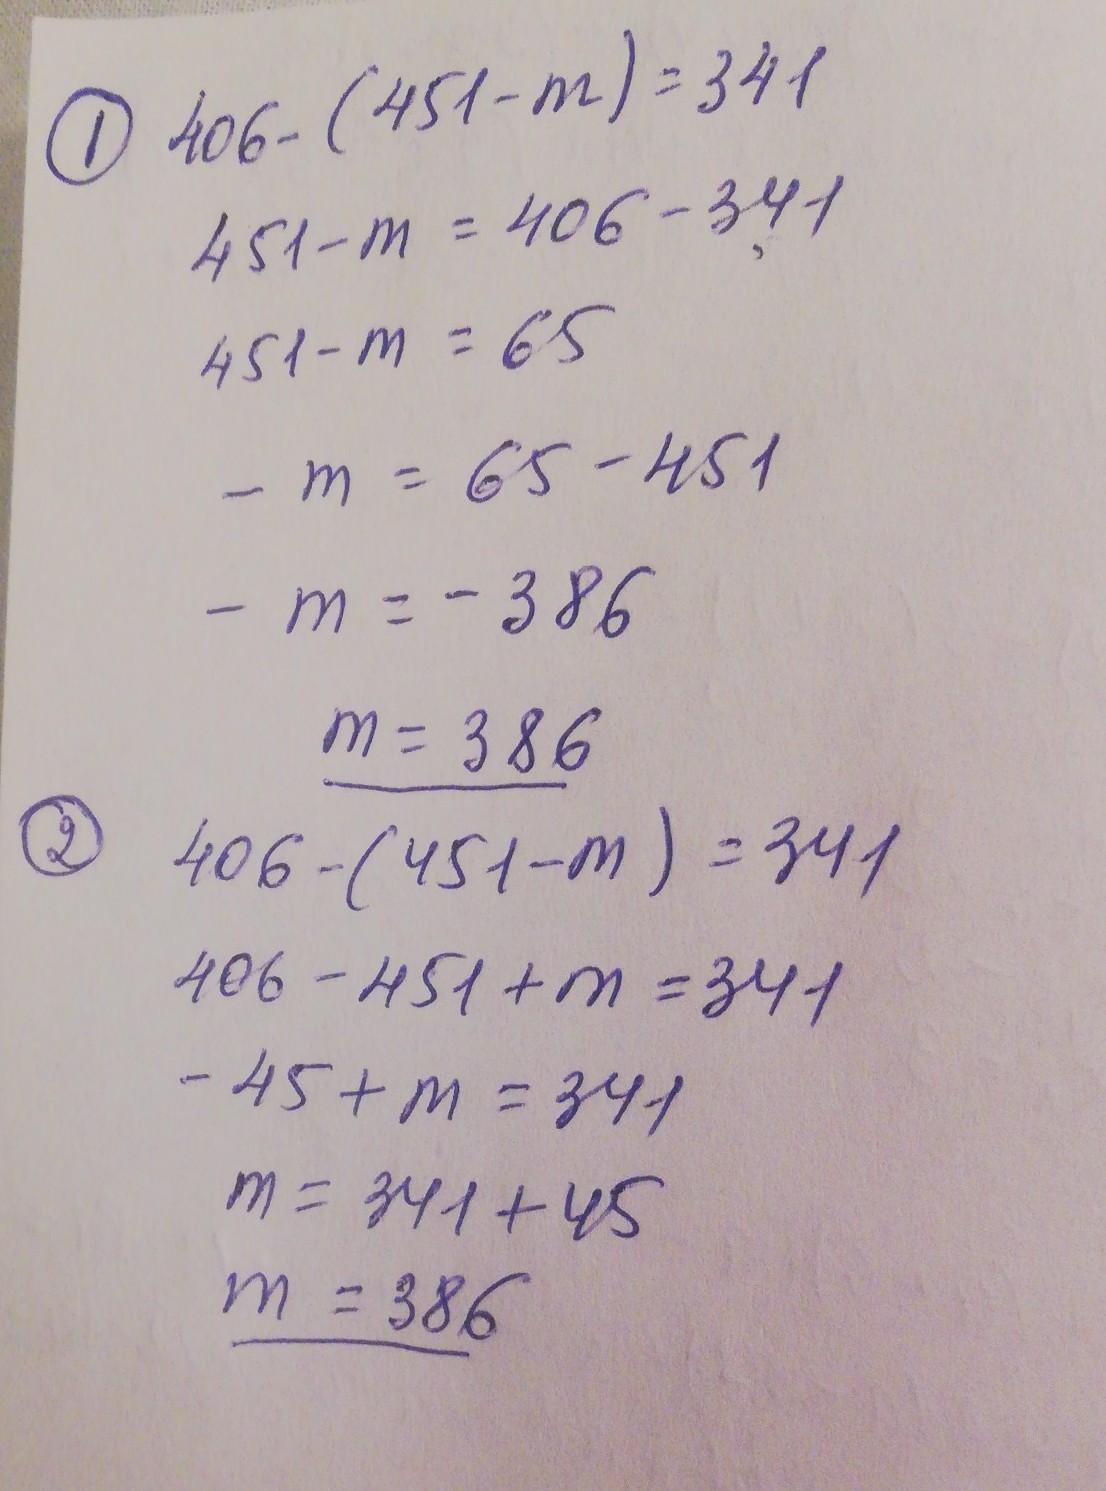 ① 406-(451-m)=341
451-m=406-341
451-m=65
-m=65-451
-m=-386
m=386
② 406-(451-m)=341
406-451+m=341
-45+m=341
m=341+45
m=386